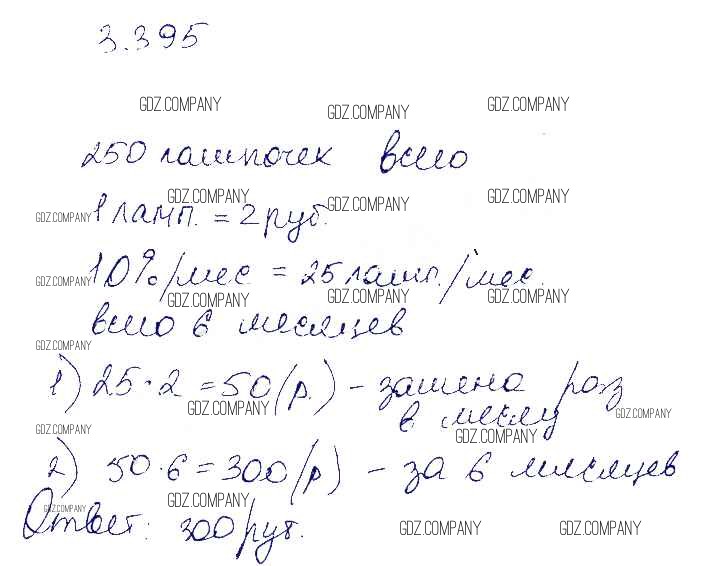 3.395
GDZ.COMPANY GDZ.COMPANY GDZ.COMPANY
250 лампочек всего
GDZ.COMPANY GDZ.COMPANY GDZ.COMPANY GDZ.COMPANY
1 ламп. = 2 руб.
10%/мес = 25 ламп./мес.
GDZ.COMPANY GDZ.COMPANY GDZ.COMPANY GDZ.COMPANY
всего 6 месяцев
GDZ.COMPANY
1) 25 · 2 = 50 (р.) – замена раз
GDZ.COMPANY GDZ.COMPANY
в месяц
GDZ.COMPANY GDZ.COMPANY
2) 50 · 6 = 300 (р) – за 6 месяцев
GDZ.COMPANY GDZ.COMPANY
Ответ: 300 руб.
GDZ.COMPANY GDZ.COMPANY